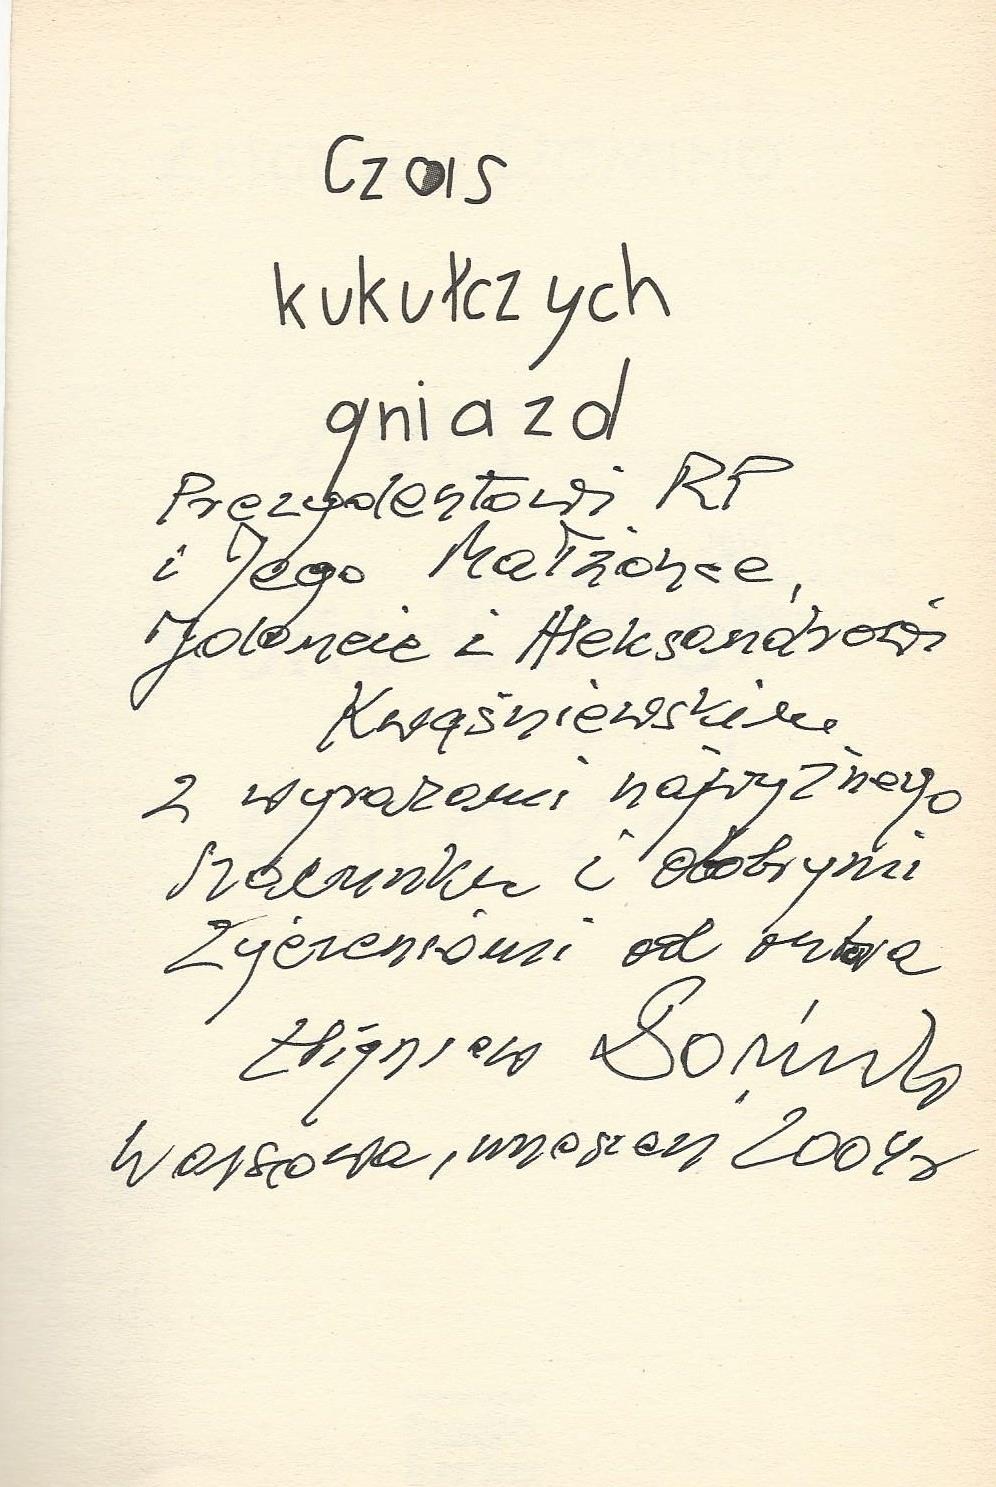 Czas
kukułczych
gniazd
Prezydentowi RP
i Jego Małżonce,
Jolancie i Aleksandrowi
Kwaśniewskim
z wyrazami najwyższego
szacunku i dobrymi
życzeniami od autora
Zbigniew
Warszawa, wrzesień 2004 r